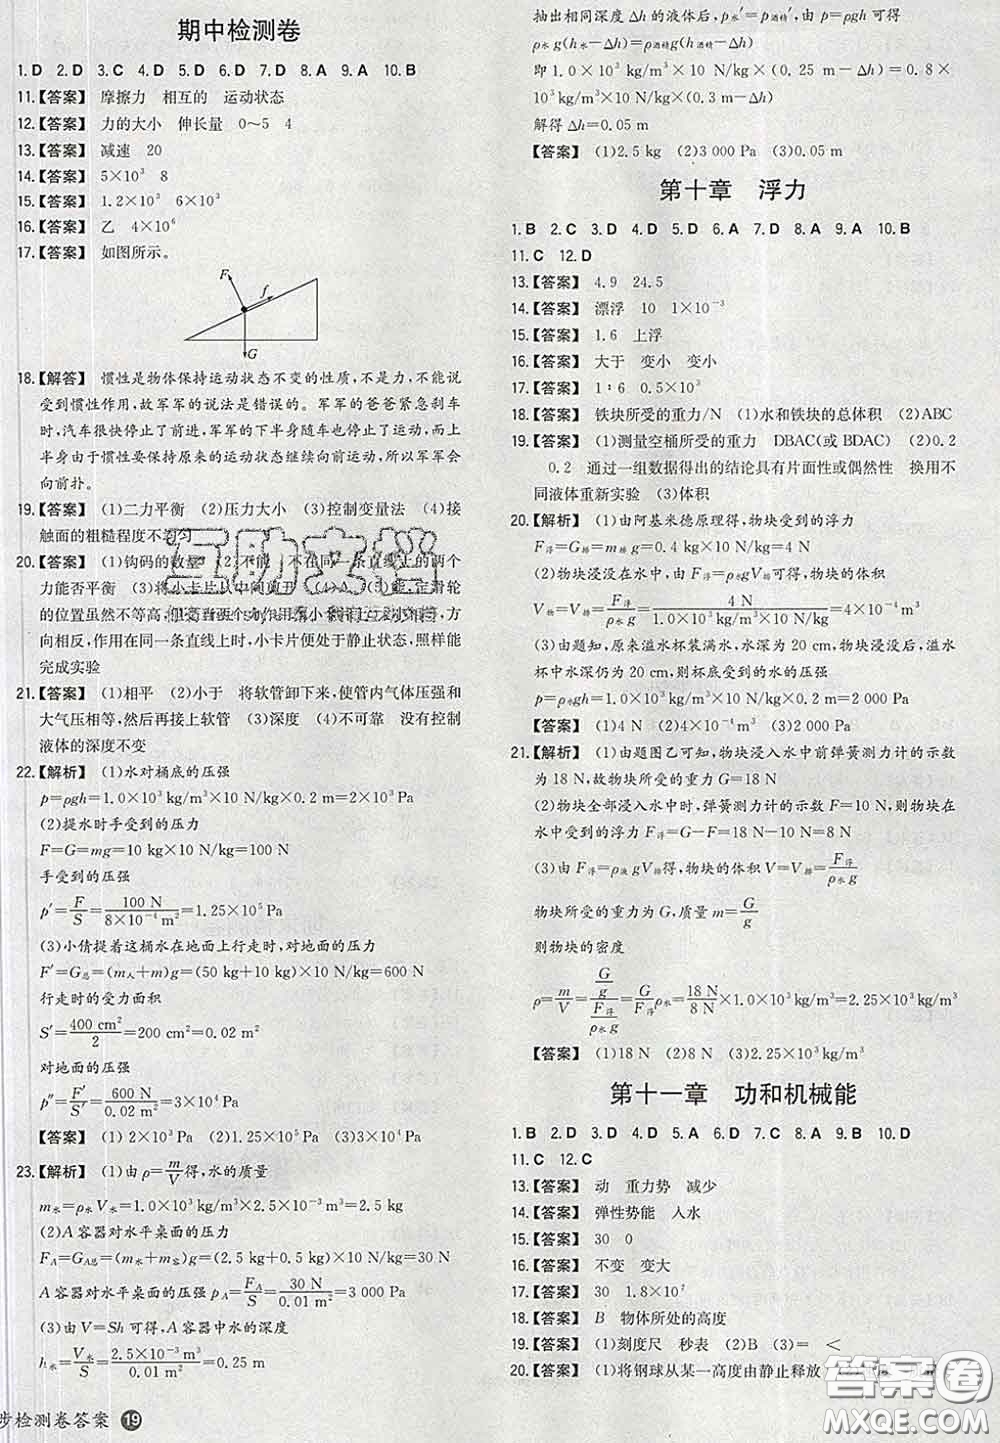 期中检测卷
1.D 2.D 3.C 4.D 5.D 6.D 7.D 8.A 9.A 10.B
11.【答案】 摩擦力 相互的 运动状态
12.【答案】 力的大小 伸长量 0～5 4
13.【答案】 减速 20
14.【答案】 5×10³ 8
15.【答案】 1.2×10³ 6×10³
16.【答案】 乙 4×10⁶
17.【答案】 如图所示。
F f
G
18.【解答】 惯性是物体保持运动状态不变的性质,不是力,不能说
受到惯性作用,故军军的说法是错误的。军军的爸爸紧急刹车
时,汽车很快停止了前进,军军的下半身随车停止了运动,而上
半身由于惯性要保持原来的运动状态继续向前运动,所以军军会
向前扑。
19.【答案】 (1)二力平衡 (2)压力大小 (3)控制变量法 (4)接
触面的粗糙程度不均匀
20.【答案】 (1)钩码的数量 (2)不能 不在同一条直线上的两个
力能否平衡 (3)将小卡片从中间剪开 (4)能 定滑轮
的位置虽然不等高,但
方向相反,作用在同一条直线上时,小卡片便处于静止状态,照样能
完成实验
21.【答案】 (1)相平 (2)小于 将软管卸下来,使管内气体压强和
大气压相等,然后再接上软管 (3)深度 (4)不可靠 没有控制
液体的深度不变
22.【解析】 (1)水对桶底的压强
p=ρgh=1.0×10³ kg/m³×10 N/kg×0.2 m=2×10³ Pa
(2)提水时手受到的压力
F=G=mg=10 kg×10 N/kg=100 N
手受到的压强
p′=F/S=100 N/8×10⁻⁴ m²=1.25×10⁵ Pa
(3)小倩提着这桶水在地面上行走时,对地面的压力
F′=G总=(m人+m)g=(50 kg+10 kg)×10 N/kg=600 N
行走时的受力面积
S′=400 cm²/2=200 cm²=0.02 m²
对地面的压强
p″=F′/S′=600 N/0.02 m²=3×10⁴ Pa
【答案】 (1) 2×10³ Pa (2)1.25×10⁵ Pa (3)3×10⁴ Pa
23.【解析】 (1)由ρ=m/V得,水的质量
m水=ρ水V水=1.0×10³ kg/m³×2.5×10⁻³ m³=2.5 kg
(2)A容器对水平桌面的压力
FA=GA总=(m水+m容)g=(2.5 kg+0.5 kg)×10 N/kg=30 N
A容器对水平桌面的压强pA=FA/S=30 N/0.01 m²=3 000 Pa
(3)由V=Sh可得,A容器中水的深度
h水=V水/S=2.5×10⁻³ m³/0.01 m²=0.25 m
步检测卷答案 19
抽出相同深度Δh的液体后,p水′=p酒精′,由p=ρgh可得
ρ水g(h水−Δh)=ρ酒精g(h酒精−Δh)
即1.0×10³ kg/m³×10 N/kg×(0.25 m−Δh)=0.8×
10³ kg/m³×10 N/kg×(0.3 m−Δh)
解得Δh=0.05 m
【答案】 (1)2.5 kg (2)3 000 Pa (3)0.05 m
第十章 浮力
1.B 2.C 3.D 4.D 5.D 6.A 7.D 8.A 9.A 10.B
11.C 12.D
13.【答案】 4.9 24.5
14.【答案】 漂浮 10 1×10⁻³
15.【答案】 1.6 上浮
16.【答案】 大于 变小 变小
17.【答案】 1∶6 0.5×10³
18.【答案】 铁块所受的重力/N (1)水和铁块的总体积 (2)ABC
19.【答案】 (1)测量空桶所受的重力 DBAC(或BDAC) (2)0.2
0.2 通过一组数据得出的结论具有片面性或偶然性 换用不
同液体重新实验 (3)体积
20.【解析】 (1)由阿基米德原理得,物块受到的浮力
F浮=G排=m排g=0.4 kg×10 N/kg=4 N
(2)物块浸没在水中,由F浮=ρ水gV排可得,物块的体积
V物=V排=F浮/ρ水g=4 N/1.0×10³ kg/m³×10 N/kg=4×10⁻⁴ m³
(3)由题知,原来溢水杯装满水,水深为20 cm,物块浸没后,溢水
杯中水深仍为20 cm,则杯底受到水的压强
p=ρ水gh=1.0×10³ kg/m³×10 N/kg×0.2 m=2 000 Pa
【答案】 (1)4 N (2)4×10⁻⁴ m³ (3)2 000 Pa
21.【解析】 (1)由题图乙可知,物块浸入水中前弹簧测力计的示数
为18 N,故物块所受的重力G=18 N
(2)物块全部浸入水中时,弹簧测力计的示数F=10 N,则物块在
水中受到的浮力F浮=G−F=18 N−10 N=8 N
(3)由F浮=ρ液gV排得,物块的体积V=V排=F浮/ρ水g
物块所受的重力为G,质量m=G/g
则物块的密度
ρ=m/V=(G/g)/(F浮/ρ水g)=G/F浮 ρ水=18 N/8 N×1.0×10³ kg/m³=2.25×10³ kg/m³
【答案】 (1)18 N (2)8 N (3)2.25×10³ kg/m³
第十一章 功和机械能
1.B 2.D 3.D 4.D 5.A 6.D 7.C 8.A 9.B 10.D
11.C 12.C
13.【答案】 动 重力势 减少
14.【答案】 弹性势能 人水
15.【答案】 30 0
16.【答案】 不变 变大
17.【答案】 30 1.8×10⁷
18.【答案】 B 物体所处的高度
19.【答案】 (1)刻度尺 秒表 (2)B (3)= <
20.【答案】 (1)将钢球从某一高度由静止释放
互助文栏
答案卷
MXQE.COM